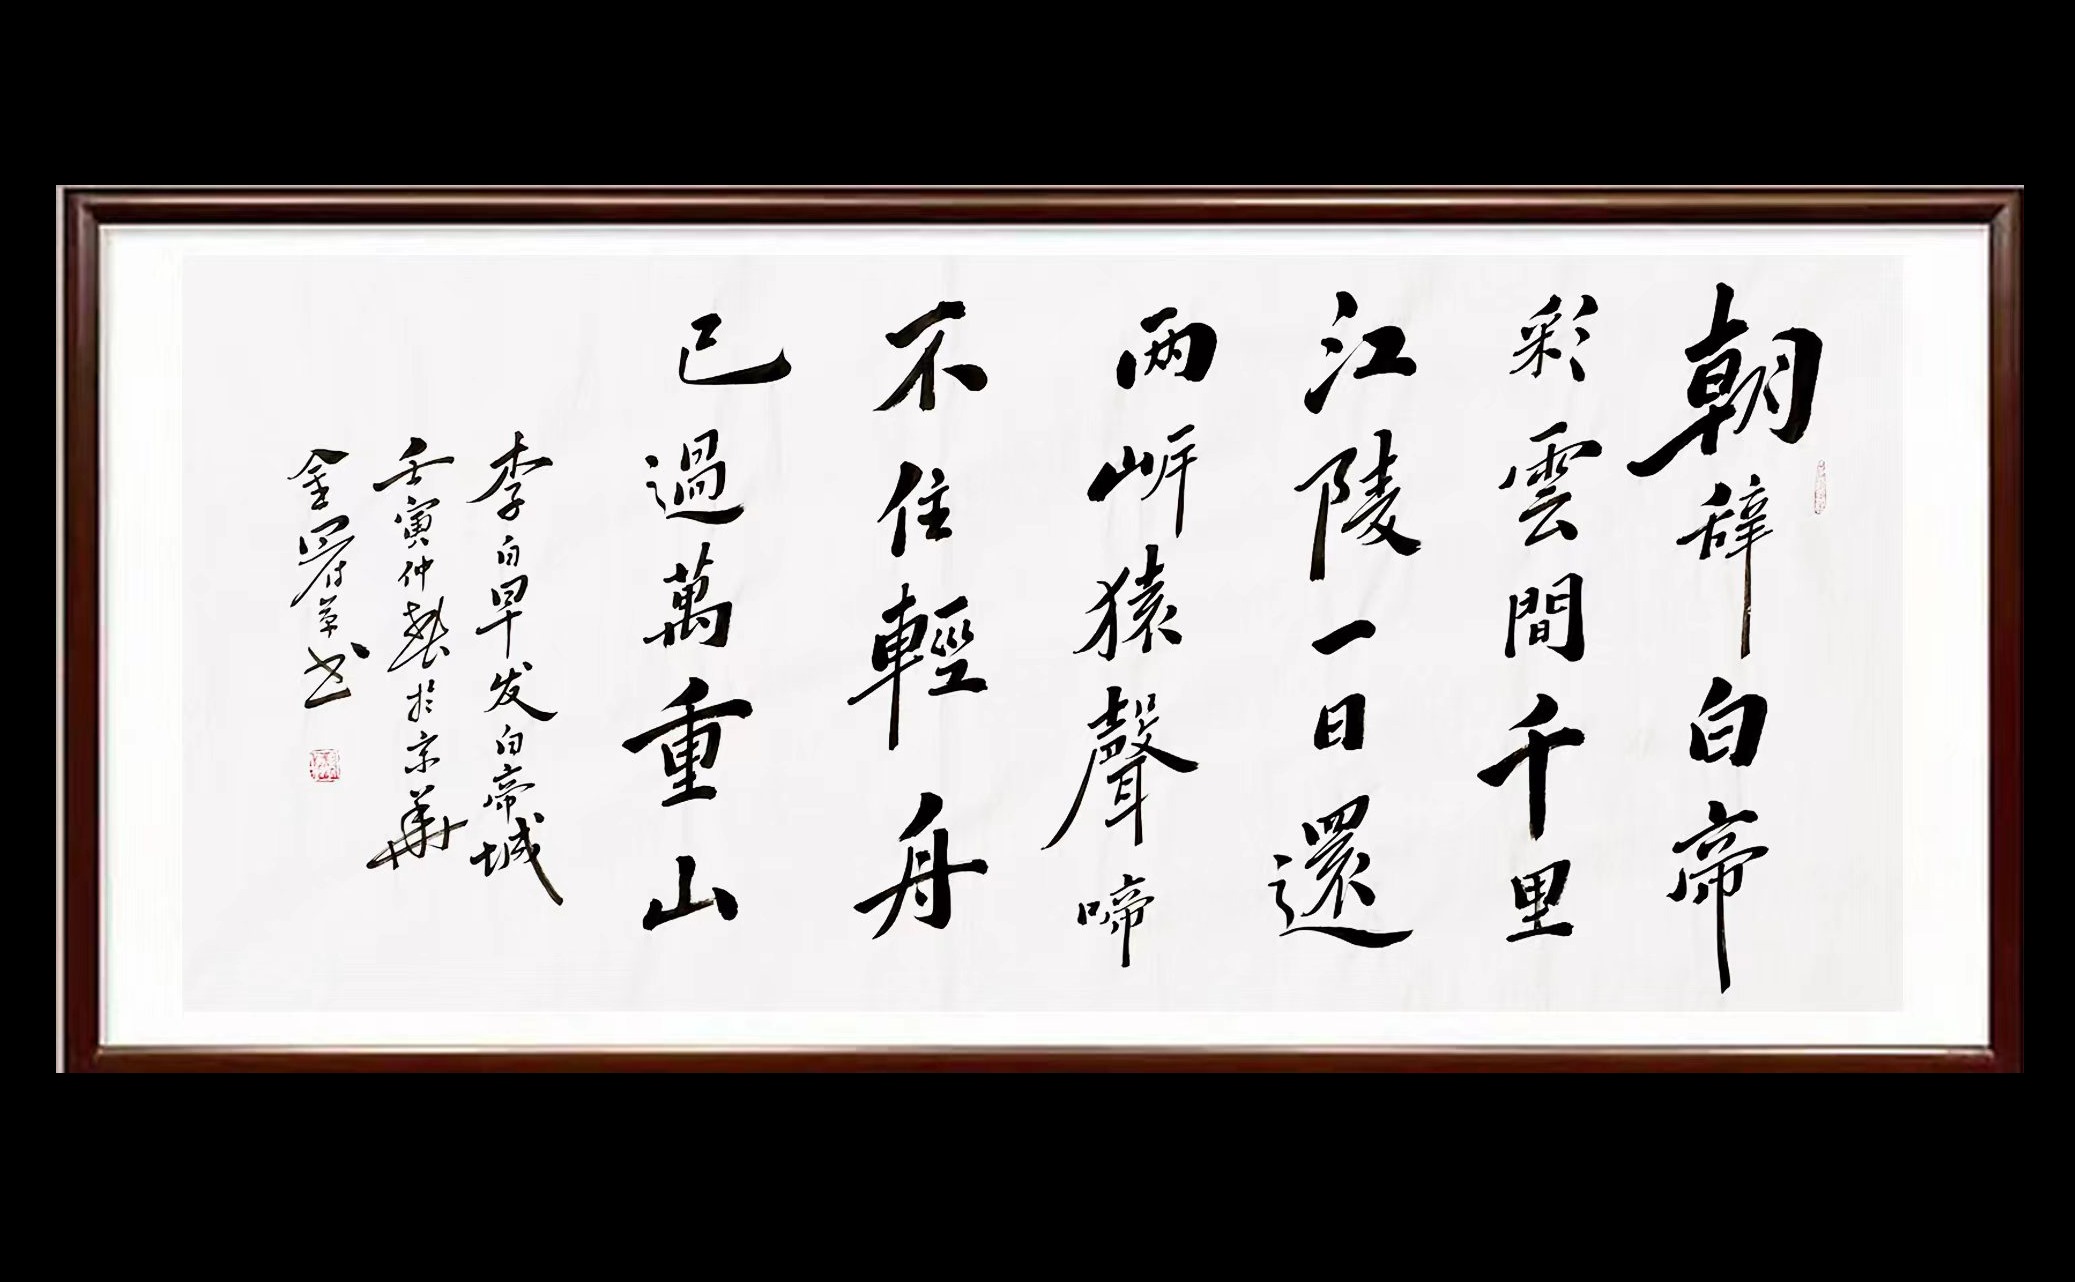 朝辞白帝
彩雲間千里
江陵一日還
兩岍猿聲啼
不住輕舟
已過萬重山
李白早发白帝城
壬寅仲於京華
金草书